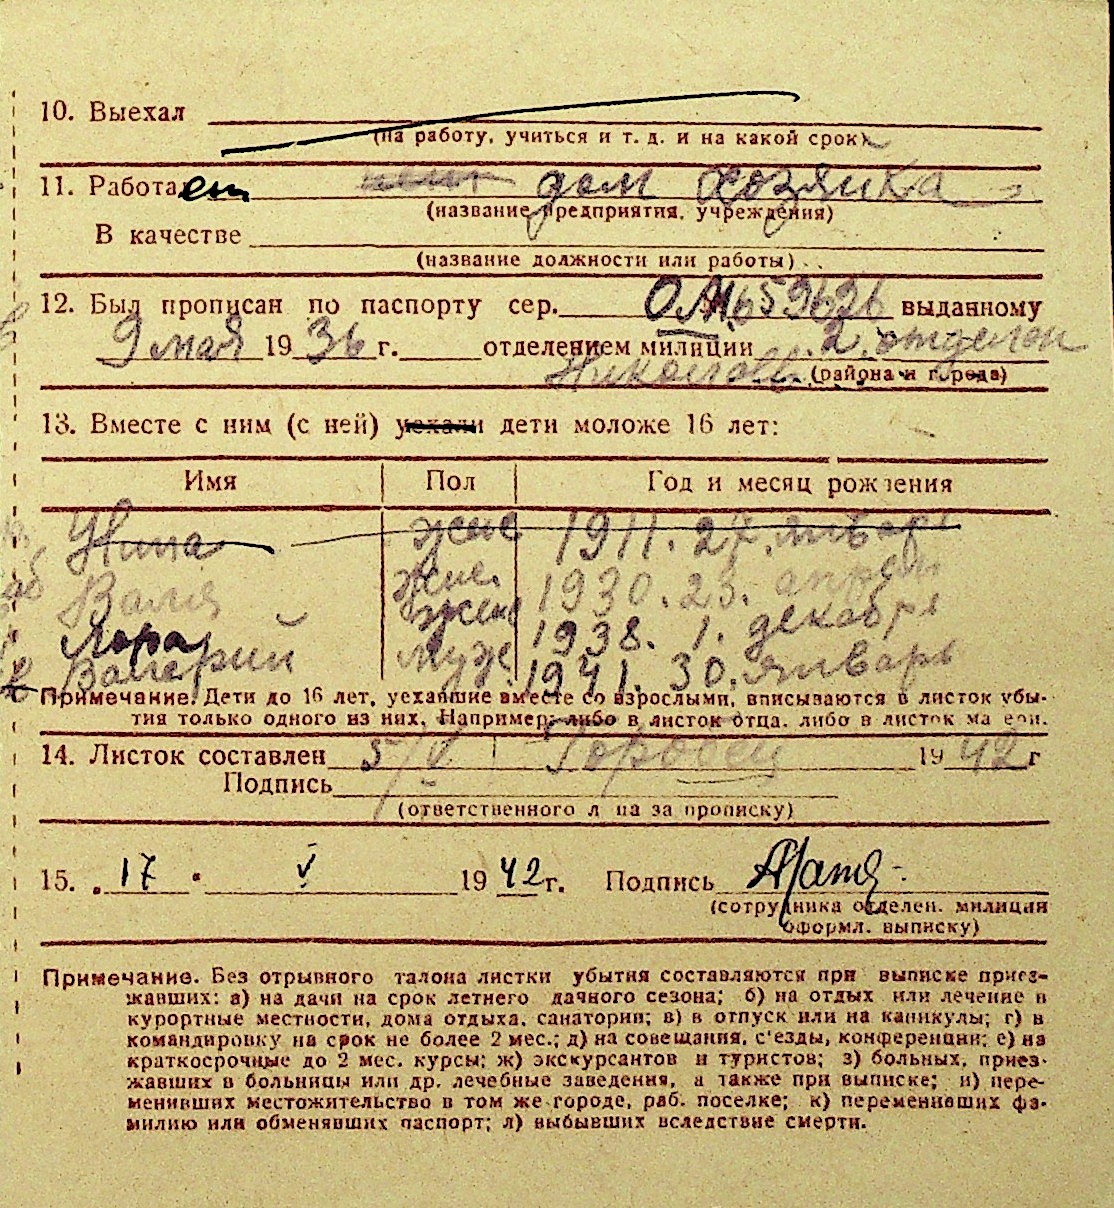 10. Выехал
(на работу, учиться и т. д. и на какой срок)
11. Работает дом хозяйка
(название предприятия, учреждения)
В качестве
(название должности или работы)
12. Был прописан по паспорту сер. ОМ 659626 выданному
9 мая 1936 г. отделением милиции 2. отделен
Николаев. (района и города)
13. Вместе с ним (с ней) уехали дети моложе 16 лет:
Имя Пол Год и месяц рождения
Нина жен 1911. 27. январь
Валя жен. 1930. 23. апрел
Лора жен 1938. 1. декабря
Валерий муж 1941. 30. январь
Примечание. Дети до 16 лет, уехавшие вместе со взрослыми, вписываются в листок убы-
тия только одного из них. Например: либо в листок отца, либо в листок матери.
14. Листок составлен 5/V Горобец 1942 г
Подпись
(ответственного лица за прописку)
15. „17" V 1942 г. Подпись
(сотрудника отделен. милиции
оформл. выписку)
Примечание. Без отрывного талона листки убытия составляются при выписке приез-
жавших: а) на дачи на срок летнего дачного сезона; б) на отдых или лечение в
курортные местности, дома отдыха, санатории; в) в отпуск или на каникулы; г) в
командировку на срок не более 2 мес.; д) на совещания, с'езды, конференции; е) на
краткосрочные до 2 мес. курсы; ж) экскурсантов и туристов; з) больных, приез-
жавших в больницы или др. лечебные заведения, а также при выписке; и) пере-
менивших местожительство в том же городе, раб. поселке; к) переменивших фа-
милию или обменявших паспорт; л) выбывших вследствие смерти.